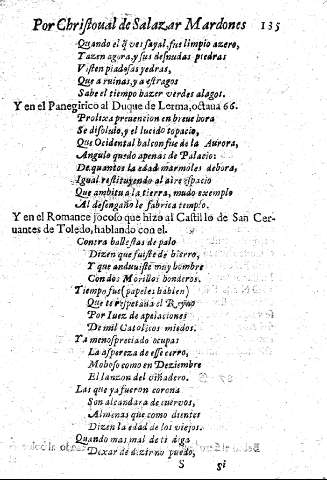 Por Christoual de Salazar Mardones 135
Quando el q̃ ves sayal, fue limpio azero,
Yazen agora, y sus desnudas piedras
Visten piadosas yedras,
Que a ruinas, y a estragos
Sabe el tiempo hazer verdes alagos.
Y en el Panegirico al Duque de Lerma, octaua 66.
Prolixa preuencion en breue hora
Se disoluio, y el lucido topacio,
Que Ocidental balcon fue de la Aurora,
Angulo quedo apenas de Palacio:
De quantos la edad marmoles debora,
Igual restituyendo al aire espacio
Que ambitu a la tierra, mudo exemplo
Al desengaño le fabrica templo.
Y en el Romance jocoso que hizo al Castillo de San Cer-
uantes de Toledo, hablando con el.
Contra ballestas de palo
Dizen que fuiste de hierro,
Y que anduuiste muy hombre
Con dos Morillos honderos.
Tiempo fue (papeles hablen)
Que te respetaua el Reyno
Por Iuez de apelaciones
De mil Catolicos miedos.
Ya menospreciado ocupas
La aspereza de esse cerro,
Mohoso como en Deziembre
El lanzon del viñadero.
Las que ya fueron corona
Son alcandara de cueruos,
Almenas que como dientes
Dizen la edad de los viejos.
Quando mas mal de ti diga
Dexar de dezir no puedo,
S si